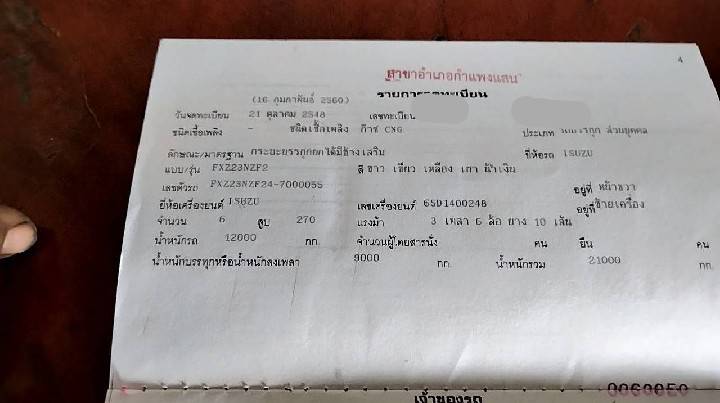 4
สาขาอำเภอกำแพงแสน
(16 กุมภาพันธ์ 2560)
รายการจดทะเบียน
วันจดทะเบียน 21 ตุลาคม 2548 เลขทะเบียน
ชนิดเชื้อเพลิง - ชนิดเชื้อเพลิง ก๊าซ CNG ประเภท ส่วนบุคคล
ลักษณะ/มาตรฐาน กระบะบรรทุกยกได้มีข้างเสริม ยี่ห้อรถ ISUZU
แบบ/รุ่น FXZ23NZF2 สี ขาว เขียว เหลือง เทา น้ำเงิน
เลขตัวรถ FXZ23NZF24-7000055 อยู่ที่ หน้าขวา
ยี่ห้อเครื่องยนต์ ISUZU เลขเครื่องยนต์ 65D1400248 อยู่ที่ ซ้ายเครื่อง
จำนวน 6 สูบ 270 แรงม้า 3 เพลา 6 ล้อ ยาง 10 เส้น
น้ำหนักรถ 12000 กก. จำนวนผู้โดยสารนั่ง คน ยืน คน
น้ำหนักบรรทุกหรือน้ำหนักลงเพลา 9000 กก. น้ำหนักรวม 21000 กก.
เจ้าของรถ